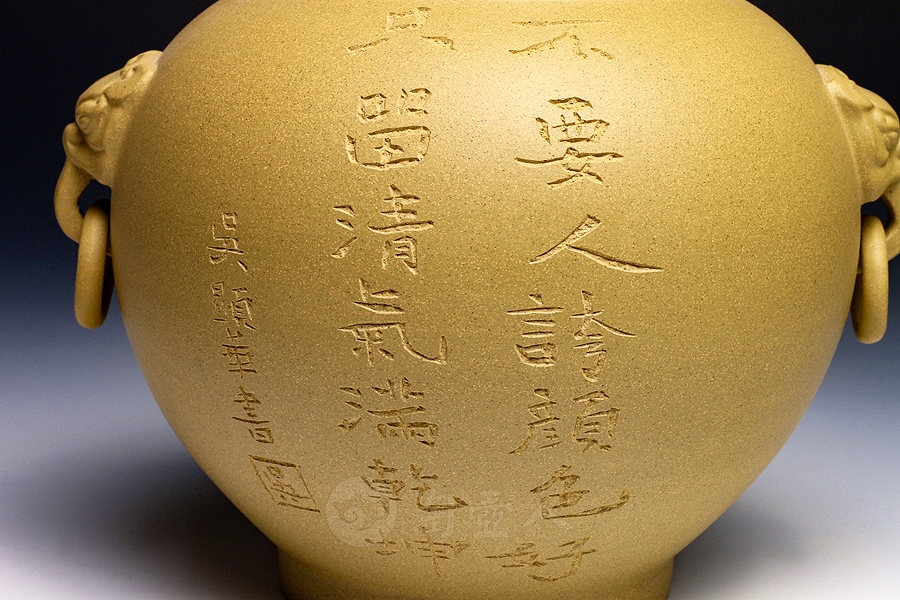 不要人誇顏色好
只留清氣滿乾坤
吳顯華書